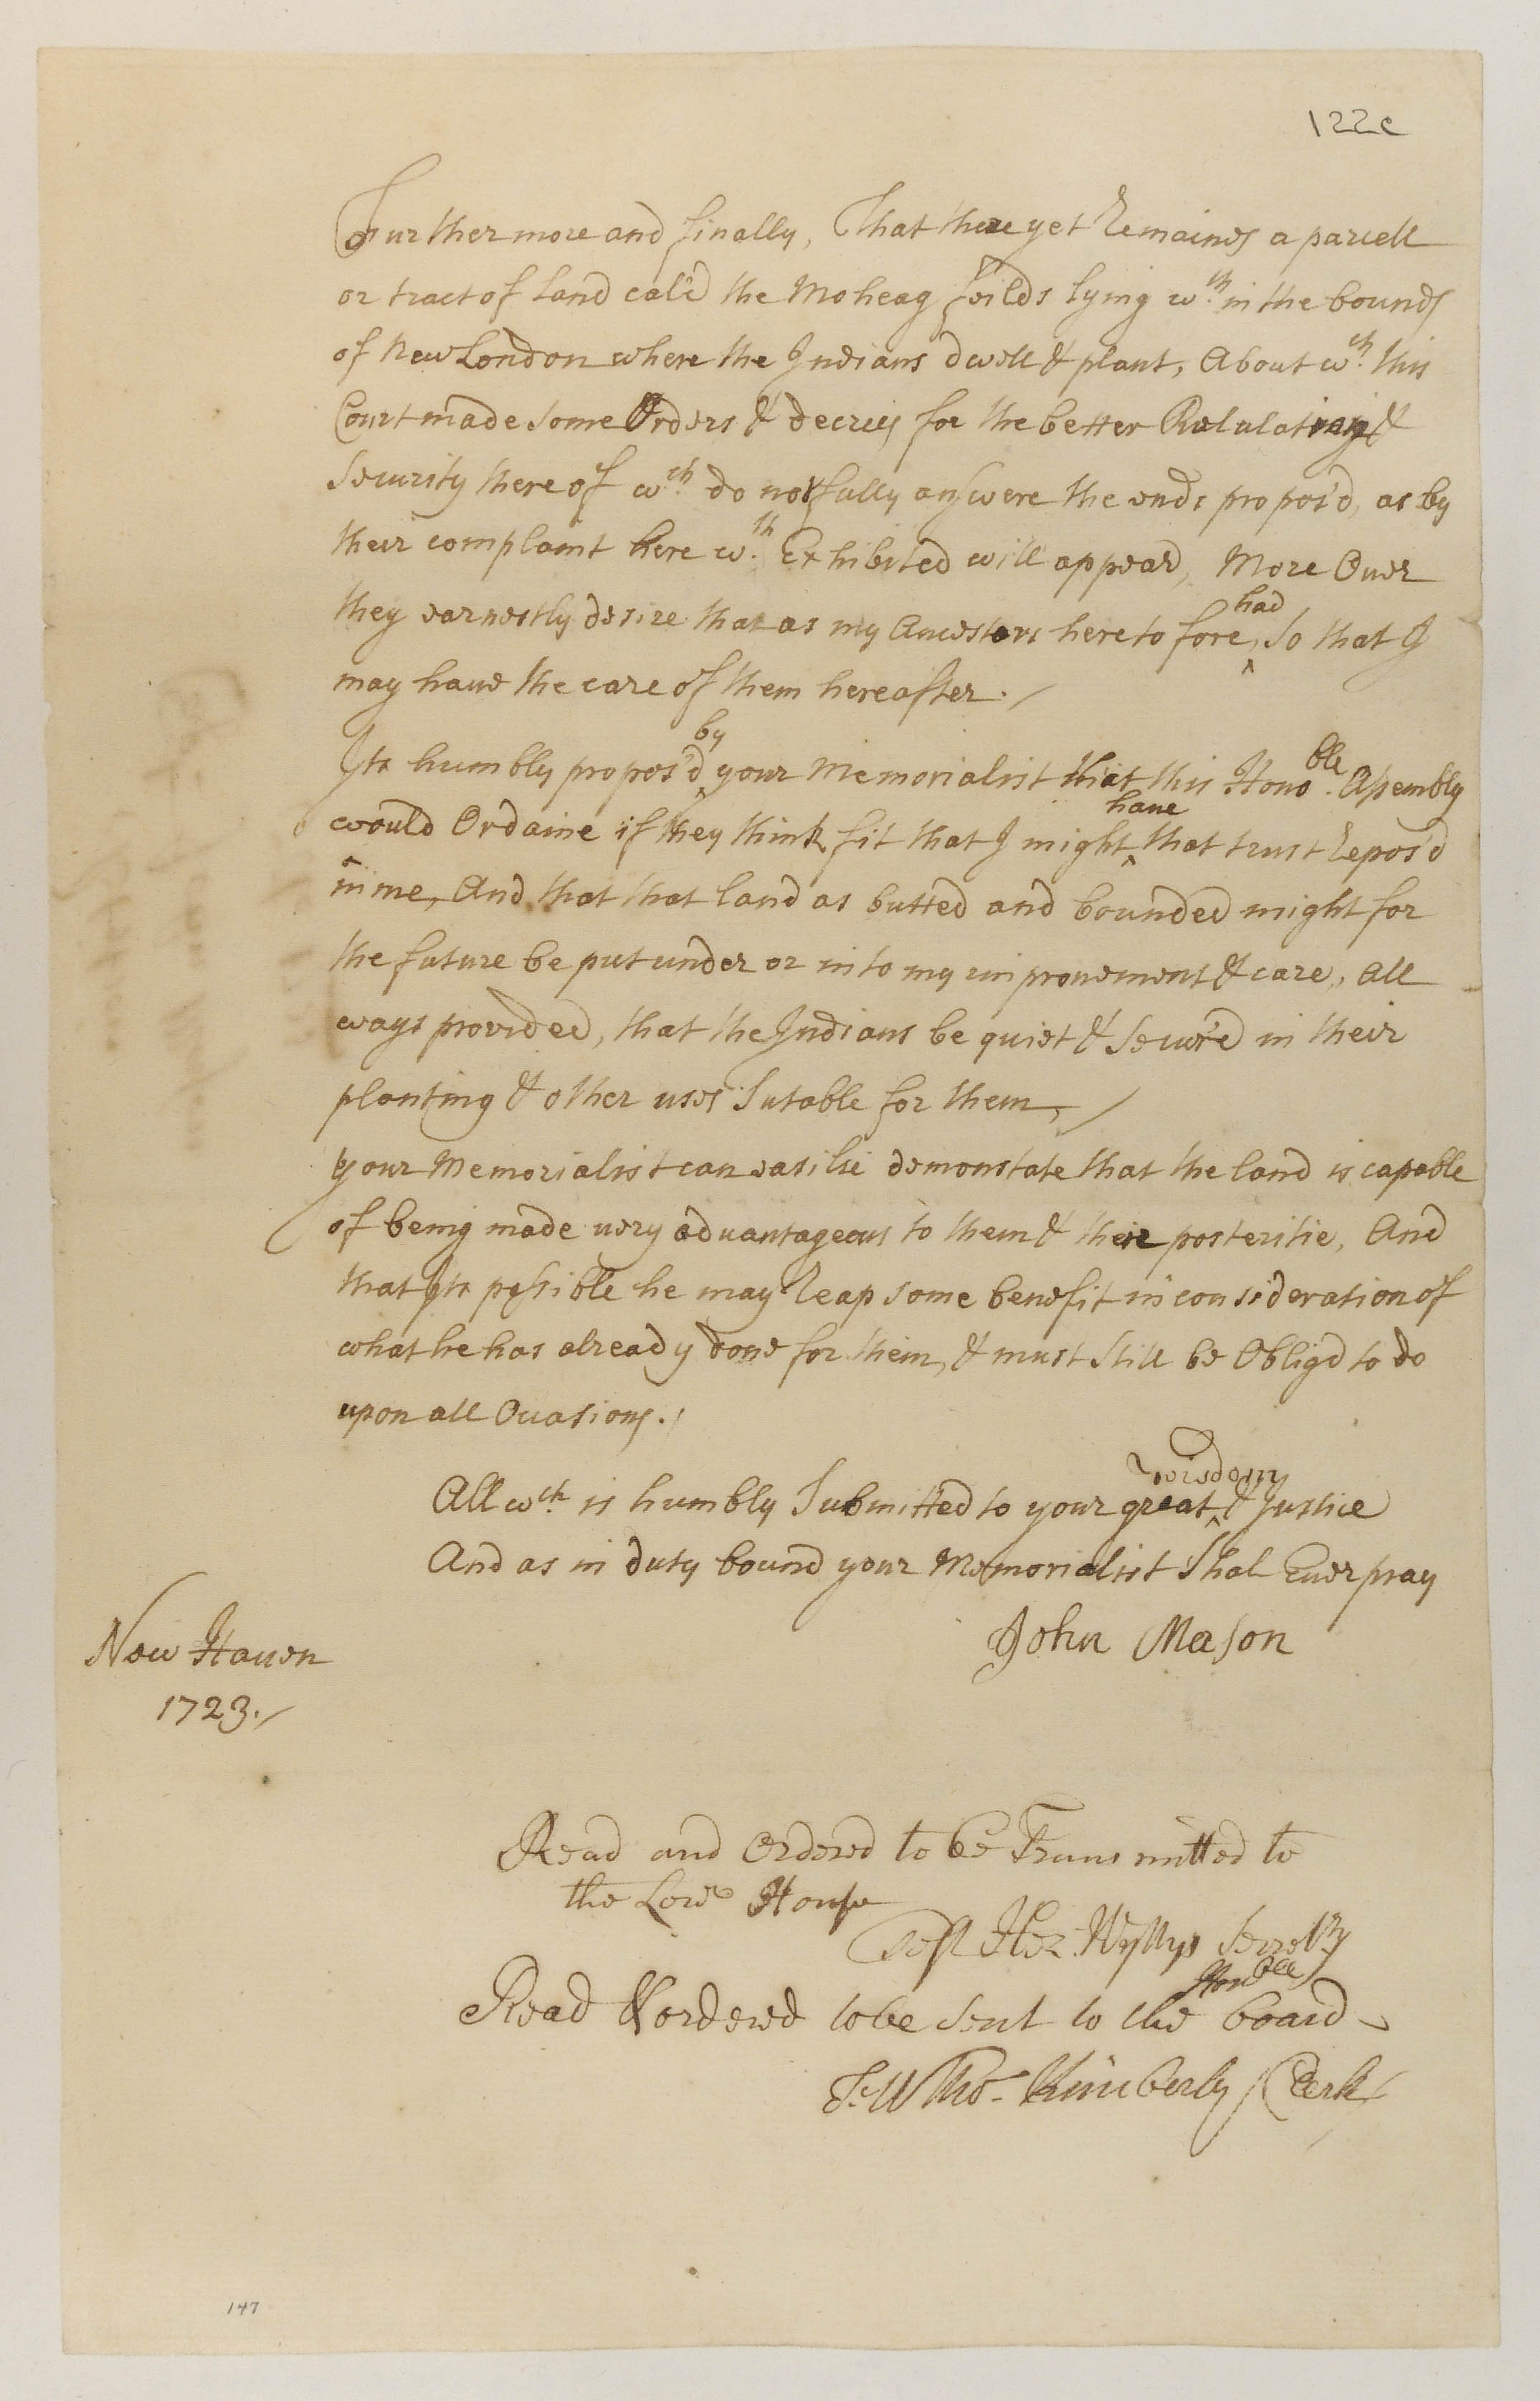 122c
Furthermore and finally, That there yet Remaines a parcell
or tract of Land cal'd the Moheag feilds lying wth in the bounds
of New London where the Indians dwell & plant, About wch this
Court made some Orders & decries for the better &
Security there of wch do not fully answere the ends propos'd, as by
their complaint here wth Exhibited will appear, More Over
they earnestly desire that as my Ancestors here to fore had, So that I
may haue the care of them hereafter.
Its humbly propos'd by your Memorialist that this Honoble Assembly
would Ordaine if they think fit that I might haue that trust Repos'd
in me, And that that land as butted and bounded might for
the future be put under or into my improuement & care, All
ways provided, that the Indians be quiet & Secur'd in their
planting & other uses Sutable for them,
Your Memorialist can easilie demonstate that the land is capable
of being made uery aduantageous to them & their posteritie, And
that Its possible he may Reap some benefit in consideration of
what he has already done for them, & must Still be Oblig'd to do
upon all Occasions.
All wch is humbly Submitted to your great wisdom & Justice
And as in duty bound your Memorialist Shal Ever pray
John Mason
New Hauen
1723.
Read and Ordered to be Transmitted to
the Lowr House
Test Hez. Wyllys Secretry
Read & ordered to be Sent to the Honble board
Test Tho. Kimberly Clerk
147